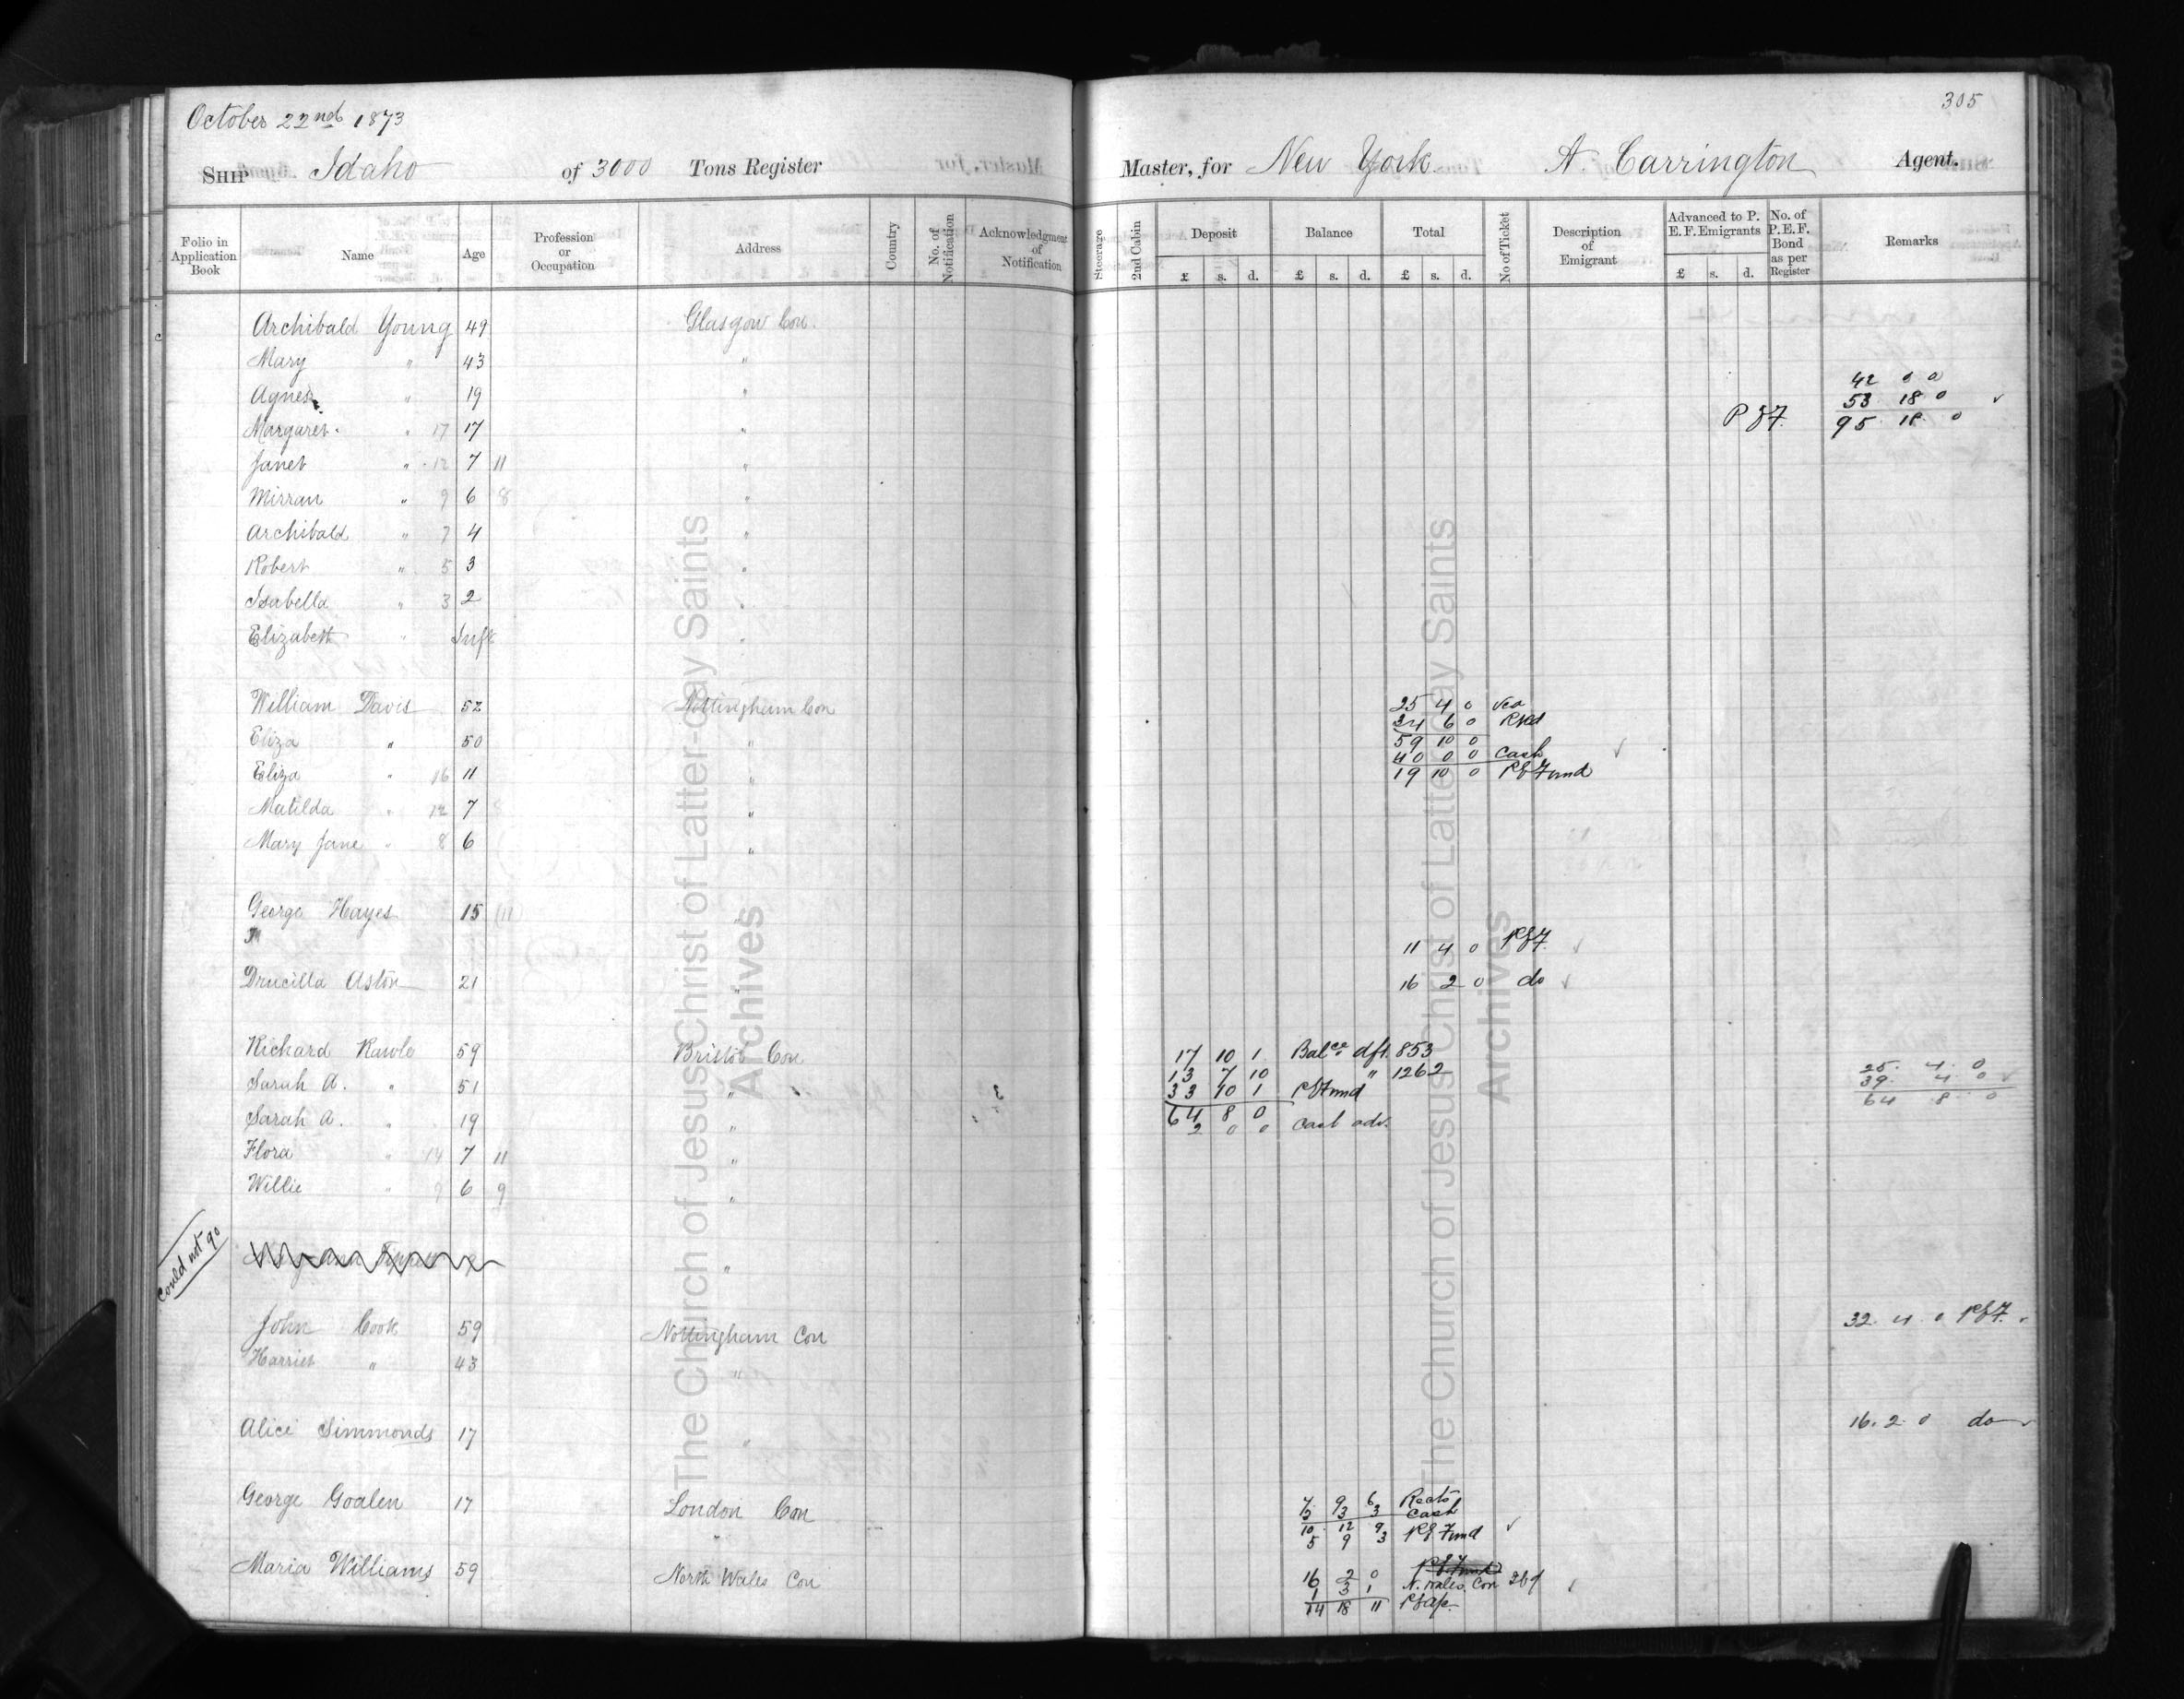 October 22nd 1873
305
Ship Idaho of 3000 Tons Register
Master, for New York A. Carrington Agent.
Folio in Application Book
Name
Age
Profession or Occupation
Address
Country
No. of Notification
Acknowledgment of Notification
Steerage
2nd Cabin
Deposit
Balance
Total
No of Ticket
Description of Emigrant
Advanced to P. E. F. Emigrants
No. of P. E. F. Bond as per Register
Remarks
£ s. d. £ s. d. £ s. d. £ s. d.
Archibald Young 49 Glasgow Con.
Mary " 43 "
Agness " 19 " 42 0 0
53 18 0
Margaret " 17 17 " P E F. 95 18 0
Janet " 12 7 11 "
Mirran " 9 6 8 "
Archibald " 7 4 "
Robert " 5 3 "
Isabella " 3 2 "
Elizabeth " Inft "
William Davis 52 Nottingham Con 25 4 0 Sea
34 6 0 RRd
Eliza " 50 " 59 10 0
40 0 0 Cash
Eliza " 16 11 " 19 10 0 P E Fund
Matilda " 12 7 8 "
Mary Jane " 8 6 "
George Hayes 15 (11) "
11 4 0 P E F.
Drucilla Aston 21 " 16 2 0 do
Richard Rawle 59 Bristol Con 17 10 1 Balce dft. 853
Sarah A. " 51 " 13 7 10 " 1262 25. 4. 0
33 10 1 P E Fund 39. 4 0
Sarah A. " 19 " 64 8 0 64 8 0
2 0 0 Cash adv.
Flora " 14 7 11 "
Willie " 9 6 9 "
Could not go
"
John Cook 59 Nottingham Con 32. 4 0 P E F.
Harriet " 43 "
Alice Simmonds 17 " 16. 2 0 do
George Goalen 17 London Con 7. 9 6 Rects
3 3 Cash
" 10 12 9
5 9 3 P E Fund
Maria Williams 59 North Wales Con 16 2 0 P E Fund
1 3 1 N. Wales Con 269
14 18 11 P E a/c
The Church of Jesus Christ of Latter-day Saints
Archives
The Church of Jesus Christ of Latter-day Saints
Archives